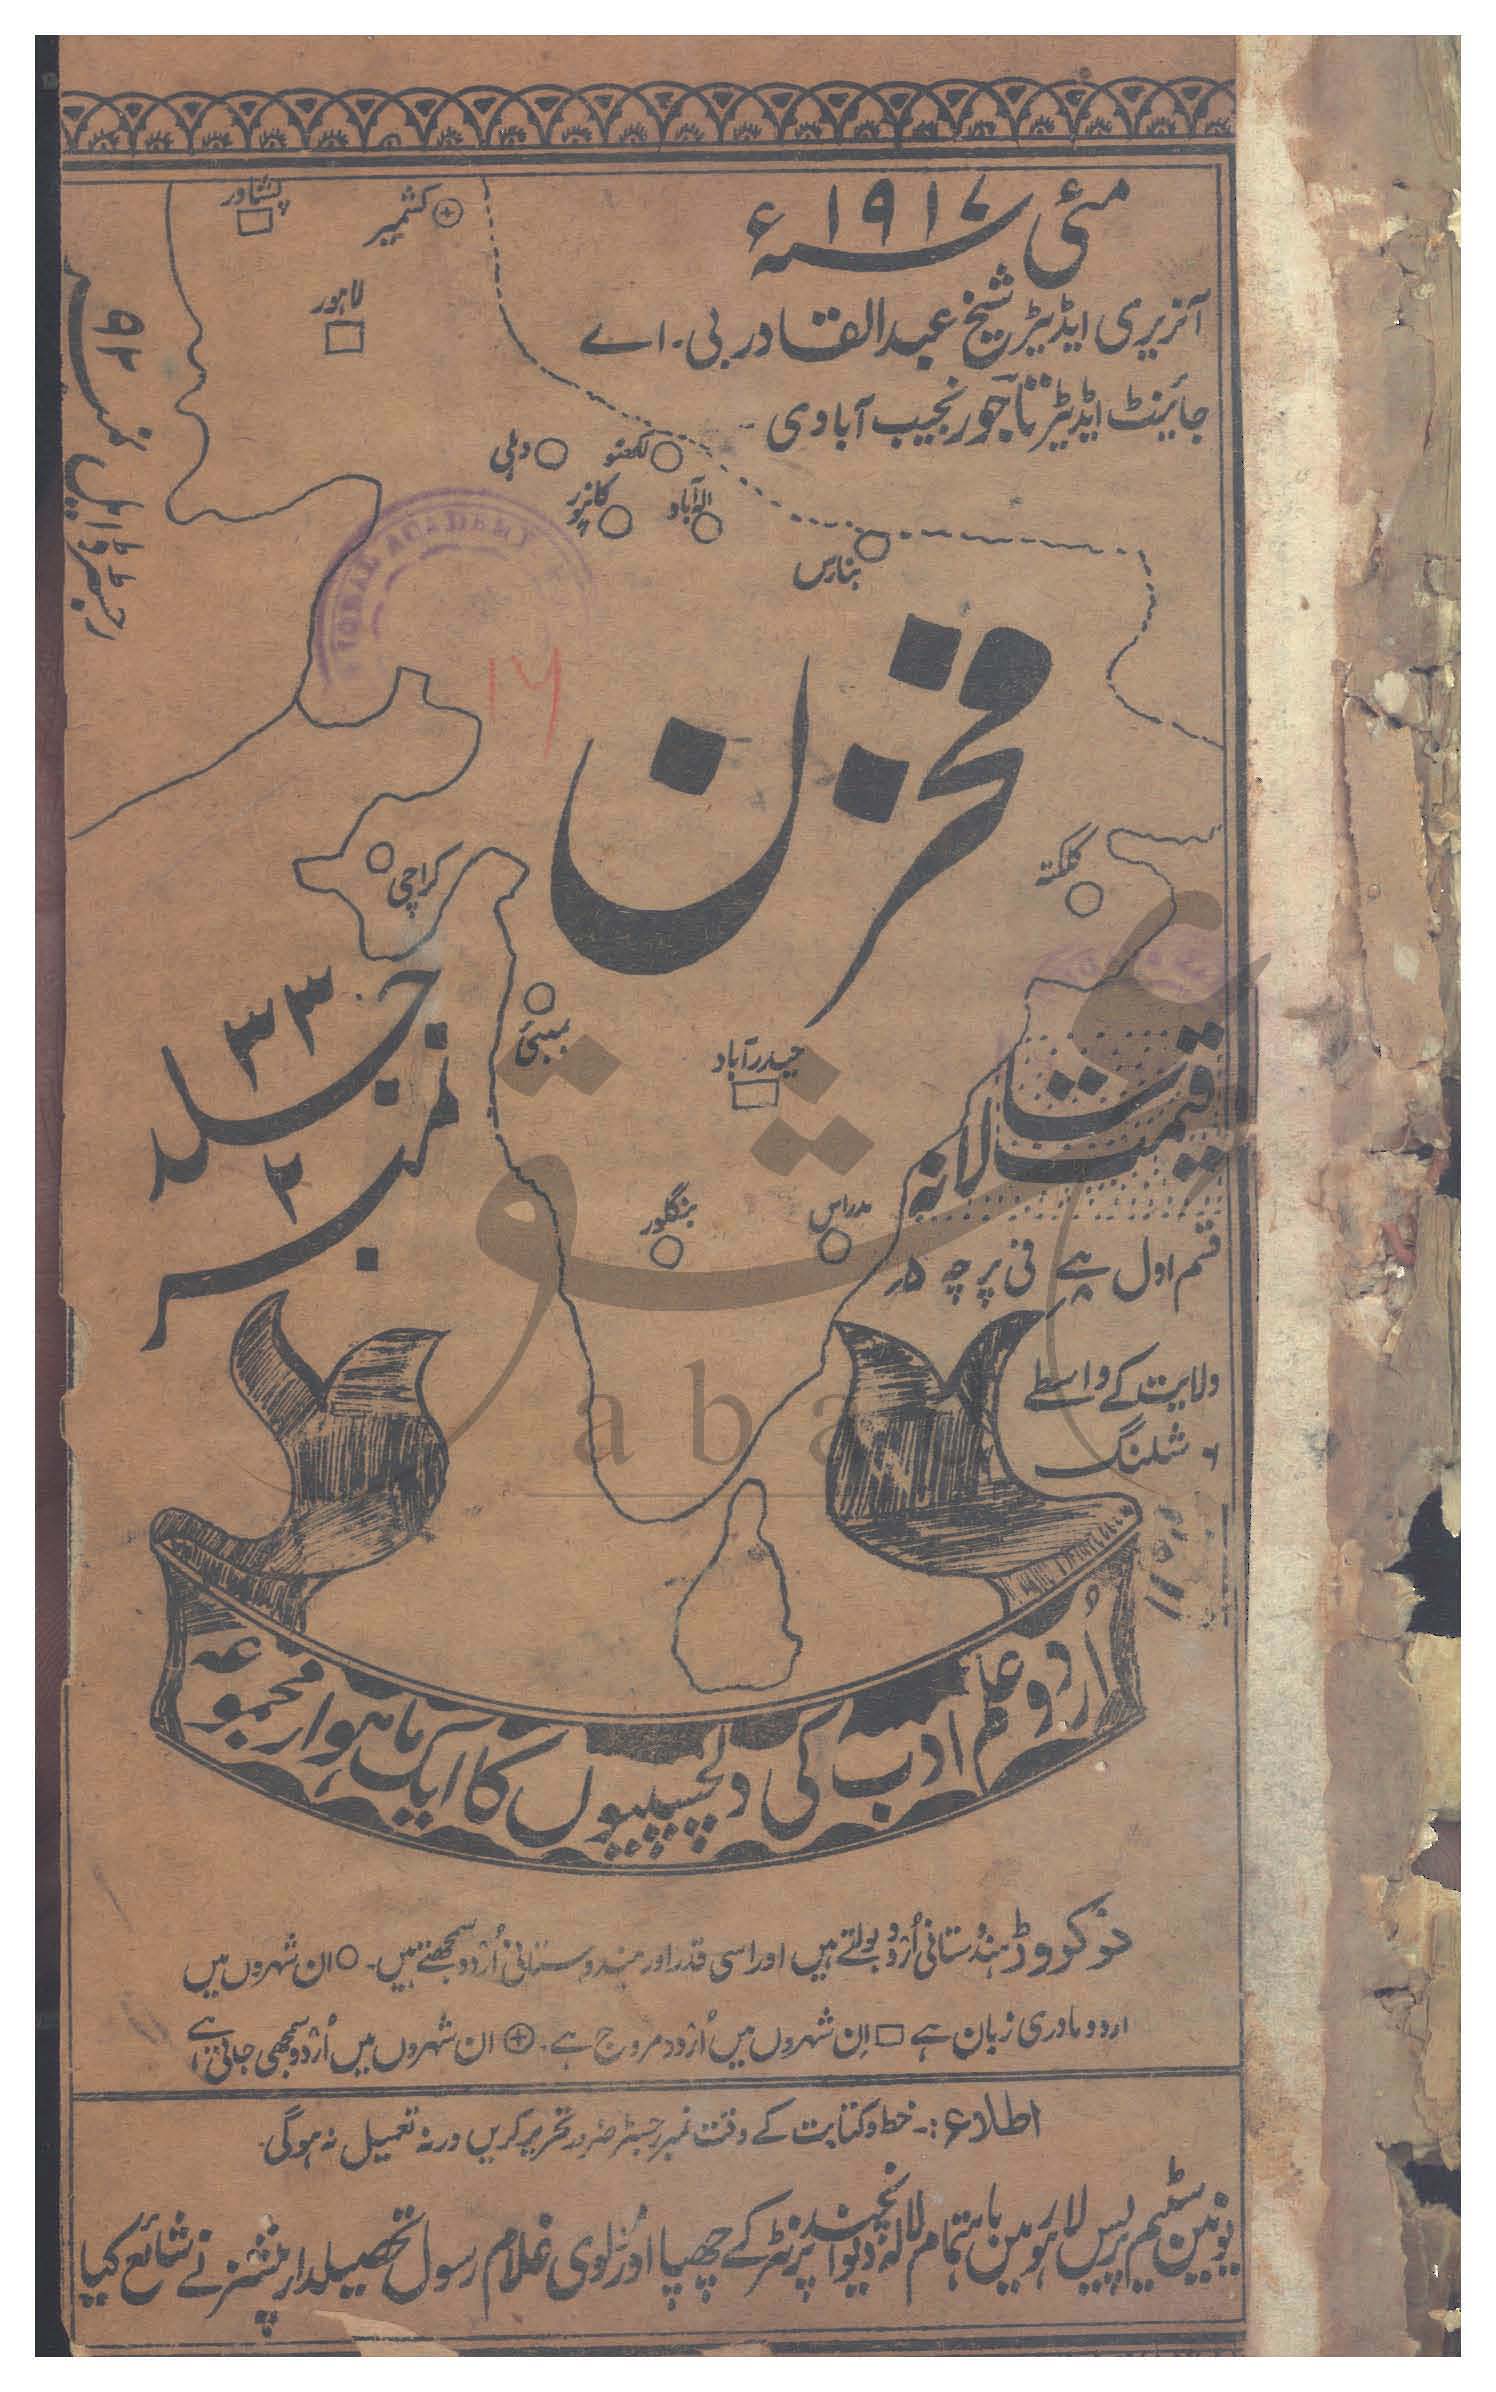 مئی ۱۹۱۷ء
آنریری ایڈیٹر شیخ عبدالقادر بی۔ اے
جائینٹ ایڈیٹر تاجور نجیب آبادی
پشاور
کشمیر
لاہور
دہلی
لکھنؤ
کانپور
الہ آباد
بنارس
۱۶
مخزن
کراچی
کلکتہ
جلد ۳۳
نمبر ۲
بمبئی
حیدرآباد
بنگلور
مدراس
قیمت سالانہ
قسم اول فی پرچہ ۵
ولایت کے واسطے
۶ شلنگ
aba
اُردو علم ادب کی دلچسپیوں کا ایک ماہوار مجموعہ
نو کروڑ ہندُستانی اُردو بولتے ہیں اور اسی قدر اور ہندوستانی اُردو سمجھتے ہیں۔ ○ ان شہروں میں
اردو مادری زبان ہے □ اِن شہروں میں اُردو مروج ہے۔ ⊕ ان شہروں میں اُردو سمجھی جاتی ہے
اطلاع:۔ خط و کتابت کے وقت نمبر رجسٹر ضرور تحریر کریں ورنہ تعمیل نہ ہوگی۔
یونین سٹیم پریس لاہور میں باہتمام لالہ دیوانچند پرنٹر کے چھپا اور مولوی غلام رسول تحصیلدار پنشنر نے شائع کیا